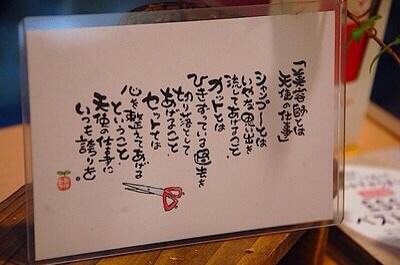 「美容師とは
天使の仕事」
シャンプーとは
いやな思い出を
流してあげること
カットとは
ひきずっている過去を
切り落として
あげること.
セットとは
心を整えてあげる
ということ.
天使の仕事に
いつも誇りを。